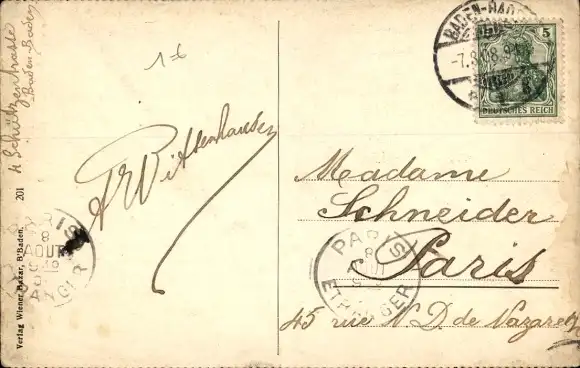 4 Schützenstrasse
Baden-Baden
1-6
201
Verlag Wiener Bazar, B'Baden.
BADEN-BADEN
-7.8.
5
DEUTSCHES REICH
Madame
Schneider
Paris
45 rue N. D. de Nazareth
PARIS
8
AOUT
ETRANGER
PARIS
8
ETRANGER